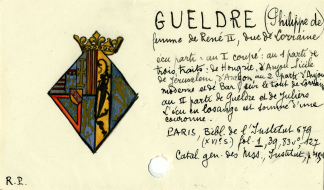 GUELDRE (Philippe de)
femme de René II, duc de Lorraine
écu parti : au I coupé : au 1 parti de
trois traits : de Hongrie, d'Anjou Sicile
de Jérusalem, d'Aragon au 2 parti d'Anjou
moderne et de Bar, sur le tout de Lorraine
au II parti de Gueldre et de Juliers
L'écu en losange est sommé d'une
couronne.
PARIS, Bibl. de l'Institut 679
(XVIe s.) fol. 1, 39, 83v°, 127
Catal. gen. des mss, Institut, p.
R.P.